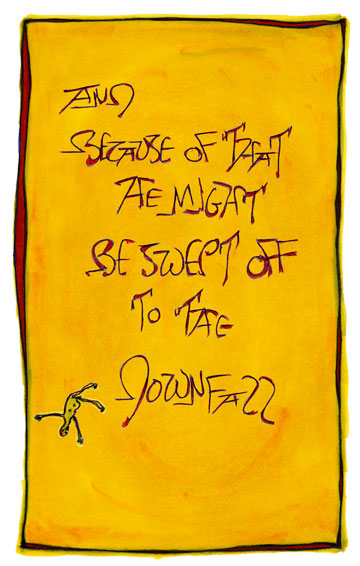 AND
BECAUSE OF THAT
HE MIGHT
BE SWEPT OFF
TO THE
DOWNFALL